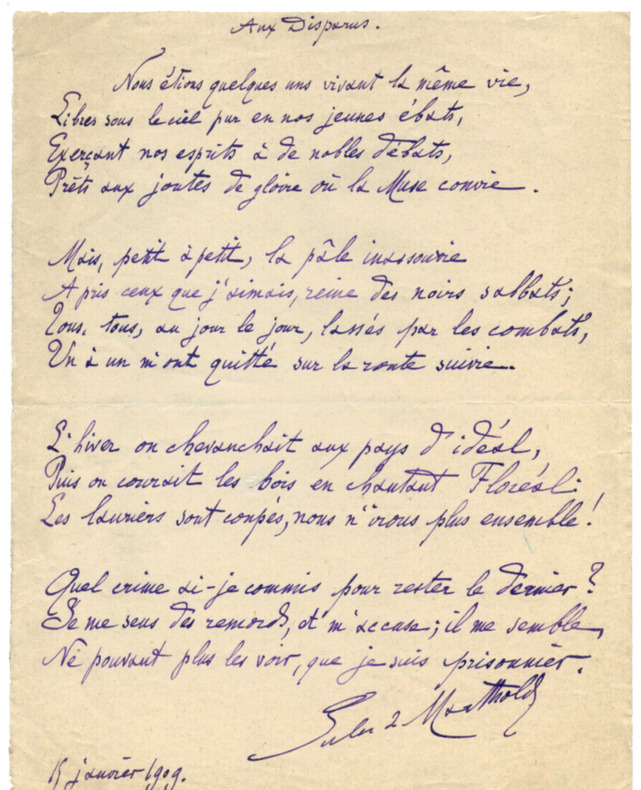 Aux Disparus.
Nous étions quelques uns vivant la même vie,
Libres sous le ciel pur en nos jeunes ébats,
Exerçant nos esprits à de nobles débats,
Prêts aux joutes de gloire où la Muse convie.
Mais, petit à petit, la pâle inassouvie
A pris ceux que j'aimais, reine des noirs sabbats;
Tous, tous, au jour le jour, lassés par les combats,
Un à un m'ont quitté sur la route suivie.
L'hiver on chevauchait aux pays d'idéal,
Puis on courait les bois en chantant Floréal.
Les lauriers sont coupés, nous n'irons plus ensemble!
Quel crime ai-je commis pour rester le dernier?
Je me sens des remords, et m'accuse; il me semble,
Ne pouvant plus les voir, que je suis prisonnier.
Jules de Marthold
15 janvier 1909.